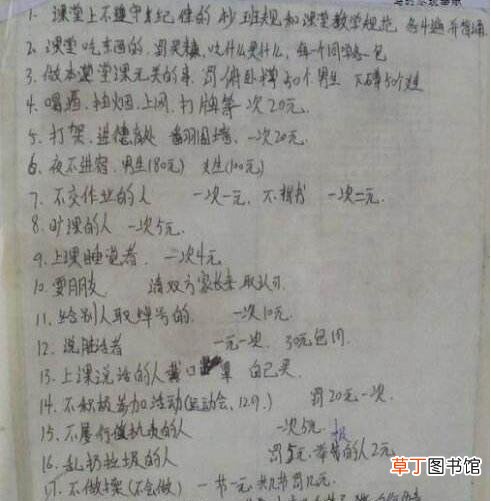 1. 课堂上不遵守纪律的 抄班规和课堂教学规范 各十遍 并背诵.
2. 课堂吃东西的, 罚买东西, 吃什么买什么, 每一个同学各一包
3. 做本堂课无关的事. 罚俯卧撑50个男生 下蹲50个女生
4. 喝酒、抽烟、上网、打牌等一次20元.
5. 打架、进德育处 翻围墙、一次20元.
6. 夜不进宿、男生(180元) 女生(100元)
7. 不交作业的人 一次一元, 不 一次二元.
8. 旷课的人 一次5元.
9. 上课睡觉者. 一次4元
10. 耍朋友 请双方家长来取认可.
11. 给别人取绰号的. 一次10元.
12. 说脏话者 一元一次. 30元包月.
13. 上课说话的人戴口罩 自己买.
14. 不积极参加活动(运动会、12.9.) 罚20元一次.
15. 不履行值执责的人 一次5元.
16. 乱扔垃圾的人 罚5元 举报的人2元.
17. 不做操(不会做) 一节一元 共几节罚几元.
草丁图书馆